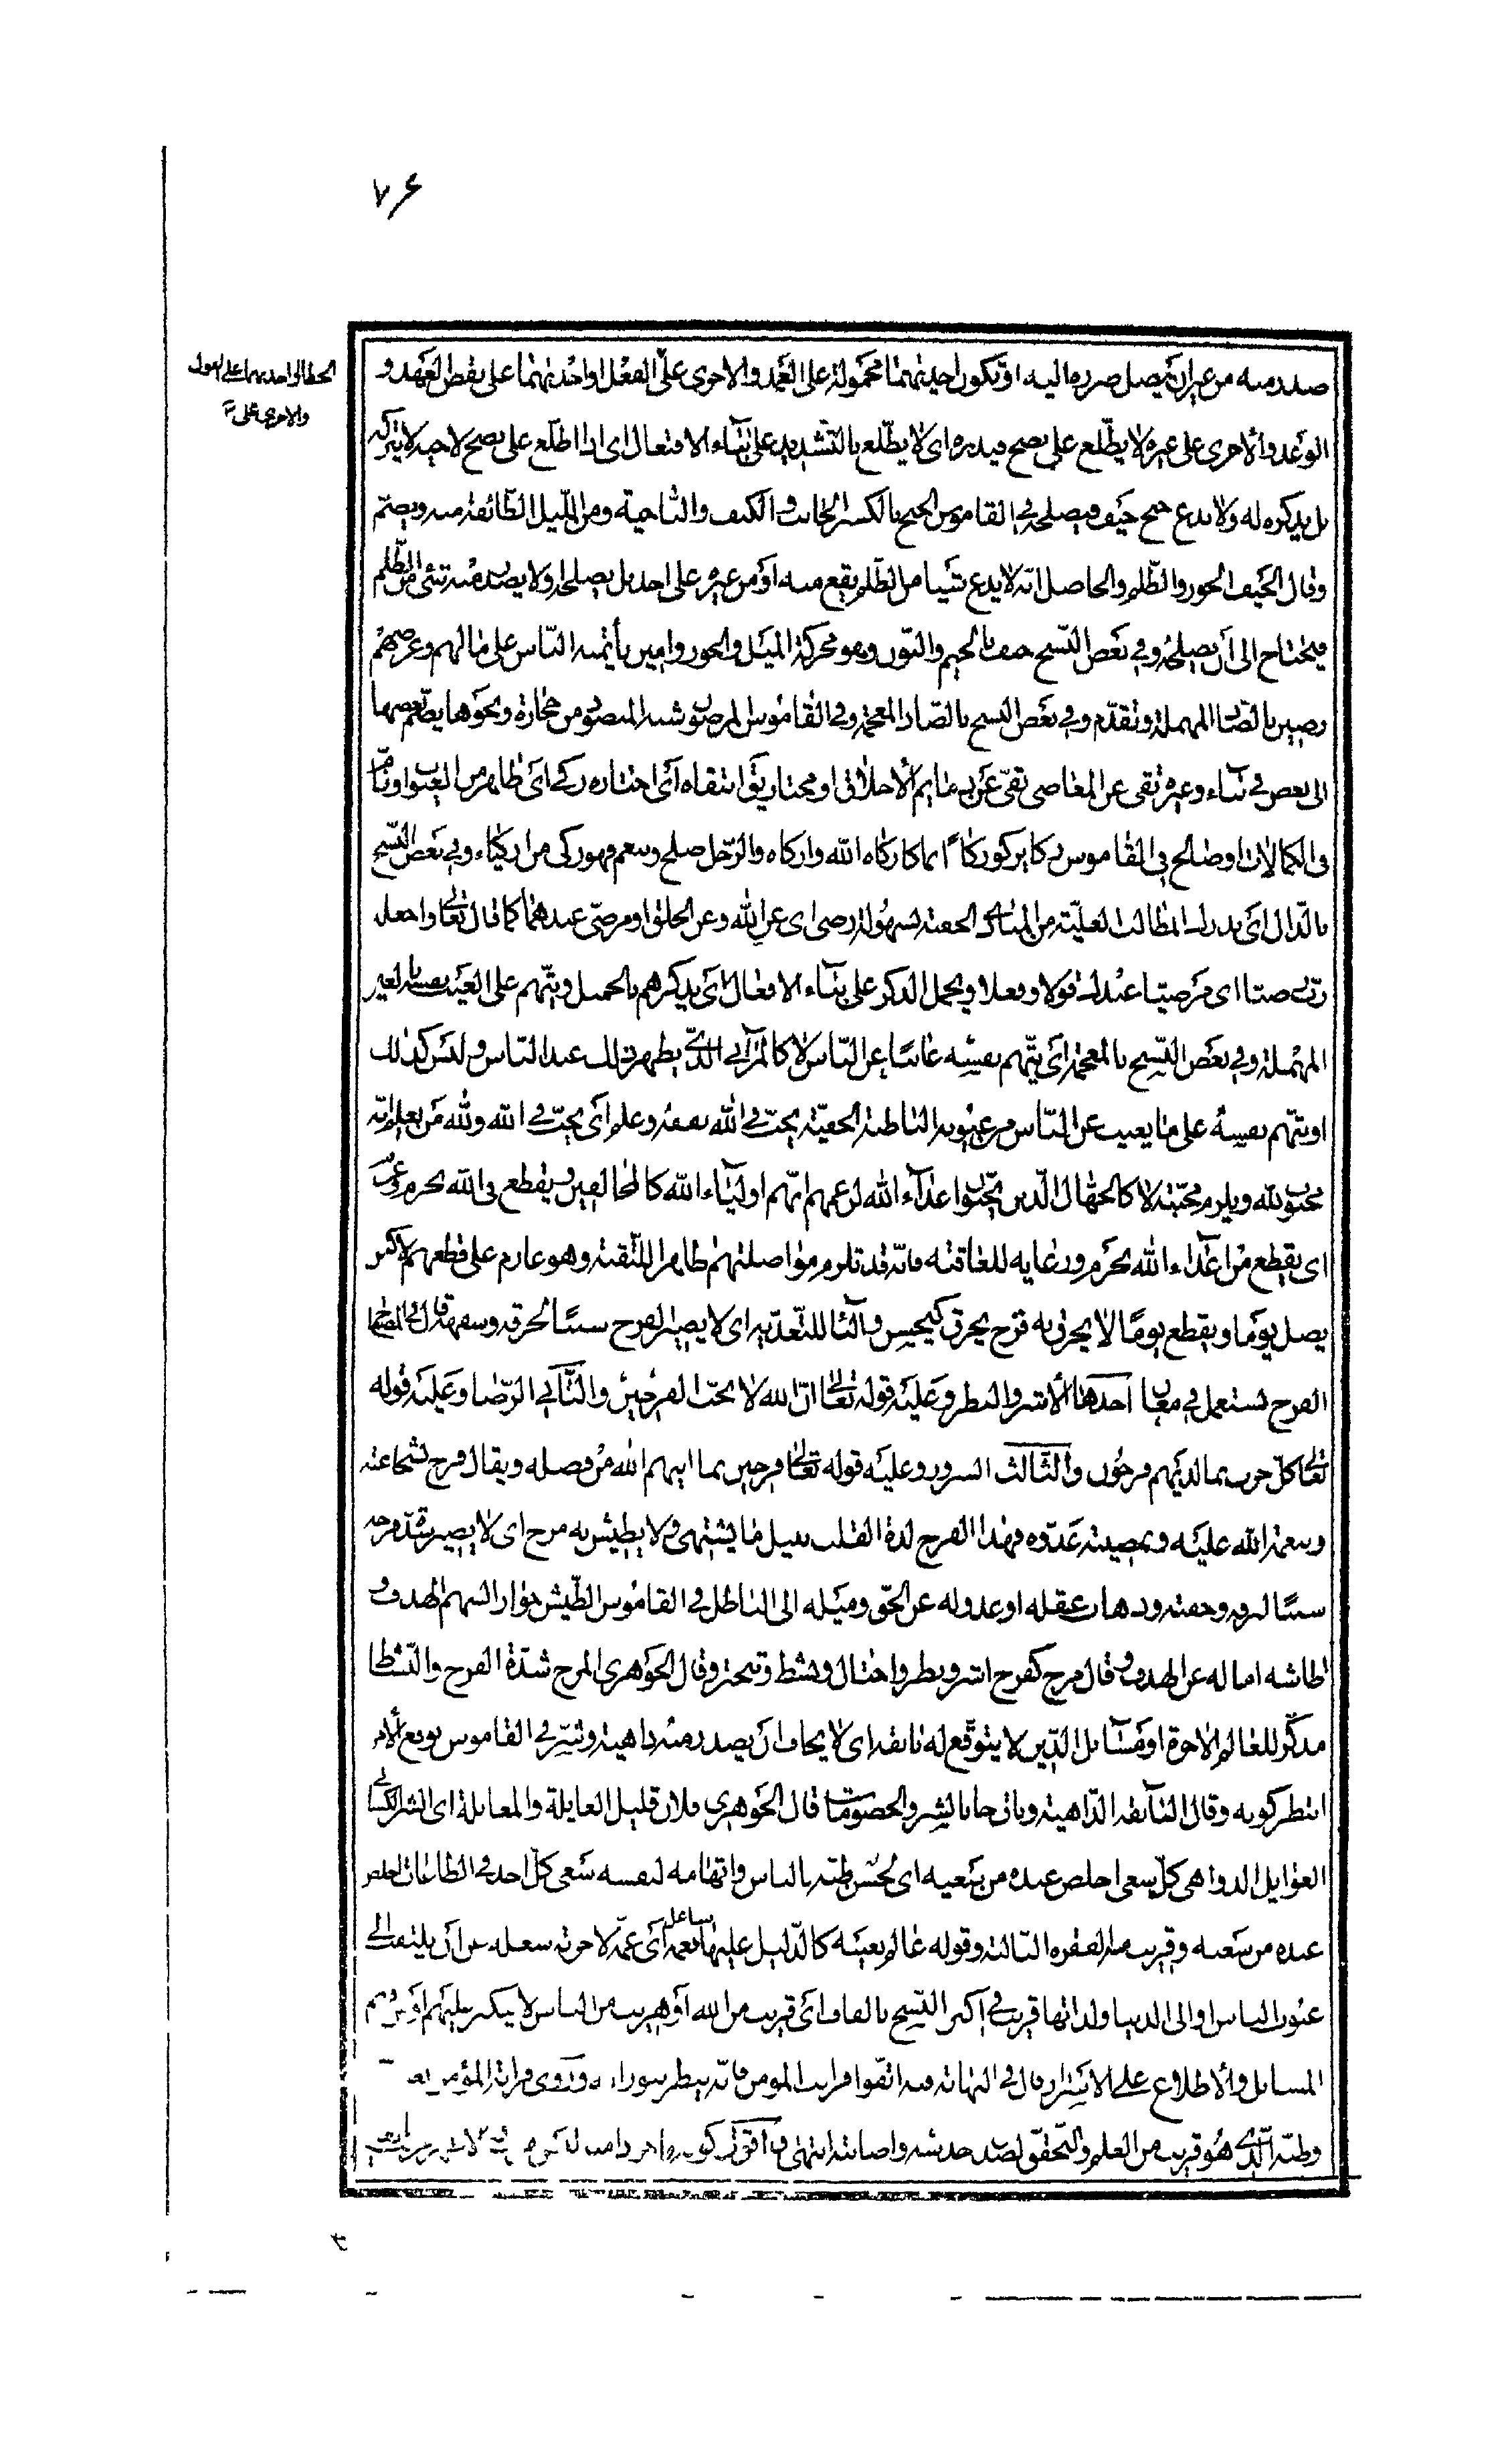 ٧۶
صدر منه من غير ان يصل ضرره اليه او تكون احديهما محمولة على العمد والاخرى على الفعل او احديهما على نقض العهد و
الخطأ او احديهما على القول
والاخرى على
الوعد والاخرى على غيره لا يطّلع على نصح فيذره اى لا يطّلع بالتّشديد على بناء الافتعال اى اذا اطّلع على نصح لاخيه لا يتركه
بل يذكره له ولا يدع جنح حيف فيصلحه فى القاموس الجنح بالكسر الجانب والكنف والناحية ومن اللّيل الطّائفة منه ويضمّ
وقال الحيف الجور والظّلم والحاصل انّه لا يدع شيئا من الظّلم يقع منه او من غيره على احد بل يصلحه او لا يصدر منه شئ من الظّلم
فيحتاج الى ان يصلحه وفى بعض النّسخ جنف بالجيم والنّون وهو محركة الميل والجور وامين يأتمنه النّاس على مالهم وعرضهم
رصين بالصّاد المهملة وتقدّم وفى بعض النسخ بالضّاد المعجمة وفى القاموس المرضون شبه المنضود من حجارة ونحوها يضمّ بعضها
الى بعض فى بناء وغيره نقى عن المعاصى تقىّ عن ذمايم الاخلاق او مختار يقال انتقاه اى اختاره زكى اى طاهر من العيوب او نام
فى الكمالات او صالح فى القاموس زكا يزكو زكاءً نما كازكاه الله وازكاه والرّجل صلح وتنعم فهو زكى من ازكياء وفى بعض النّسخ
بالذّال اى يدرك المطالب العليّة من المبادى الخفيّة بسهولة رضى اى عن الله وعن الخلق او مرضىّ عندهما كما قال تعالى واجعله
ربّ رضيّا اى مرضيّا عندك قولا وفعلا ويجمل الذكر على بناء الافعال اى يذكرهم بالجميل ويتّهم على العيب نفسه بالعين
المهملة وفى بعض النّسخ بالمعجمة اى يتّهم نفسه غائبا عن النّاس لا كالمرآئى الّذى يظهر ذلك عند النّاس وليس كذلك
او يتّهم نفسه على ما يغيب عن النّاس من عيوبه الباطنة الخفيّة يحبّ فى الله بفقه وعلم اى يحبّ فى الله ولله من يعلم انّه
محبوب لله ويلزم محبّته لا كالجهّال الّذين يحبّون اعدآء الله لزعمهم انّهم اولياء الله كالمخالفين ويقطع فى الله بحزم وعزم
اى يقطع من اعدآء الله بحزم ورعاية للعاقبة فانّه قد تلزم مواصلتهم ظاهرا للتّقية وهو عازم على قطعهم لا كمن
يصل يوما ويقطع يوما لا يخرق به فرح يخرق كيحسن والبآء للتّعدية اى لا يصير الفرح سببا لخرقه وسفهه قال فى المصباح
الفرح يستعمل فى معان احدها الاشر والبطر وعليه قوله تعالى انّ الله لا يحبّ الفرحين والثّانى الرّضا وعليه قوله
تعالى كلّ حزب بما لديهم فرحون والثّالث السرور وعليه قوله تعالى فرحين بما آتيهم الله من فضله ويقال فرح بشجاعته
ونعمة الله عليه وبمصيبة عدّوه فهذا الفرح لذة القلب بنيل ما يشتهى ولا يطيش به مرح اى لا يصير شدّة فرحه
سببا لنزقه وخفته وذهاب عقله او عدوله عن الحقّ وميله الى الباطل فى القاموس الطّيش جواز السهم الهدف و
اطاشه اماله عن الهدف وقال مرح كفرح اشر وبطر واختال ونشط وتبختر وقال الجوهرى المرح شدّة الفرح والنّشاط
مذكّر للعالم الاخرة او مسآئل الدّين لا يتوقّع له بائقة اى لا يخاف ان يصدر منه داهية وشرّ فى القاموس توقع الامر
انتظر كونه وقال البآئقة الدّاهية وباق جا بالشر والخصومات قال الجوهرى فلان قليل الغايلة والمغالة اى الشر الكسائى
الغوايل الدواهى كلّ سعى اخلص عنده من سعيه اى لحسن ظنّه بالناس واتهامه لنفسه سعى كلّ احد فى الطاعات اخلص
عنده من سعيه وقريب منه الفقره التالية وقوله عالم بعيبه كالدّليل عليها شاغل بغمه اى غمّه لاخرته شغله عن ان يلتفت الى
عيوب الناس او الى الدنيا ولذاتها قريب فى اكثر النّسخ بالقاف اى قريب من الله او قريب من الناس لا يتكبر عليهم او من فهم
المسائل والاطلاع على الاسرار قال فى النهاية فيه اتّقوا قراب المومن فانّه ينظر بنور الله وروى قرابة المؤمن يعنى
وظنّه الّذى هو قريب من العلم والتّحقّق لصدق حدسه واصابته انتهى واقول